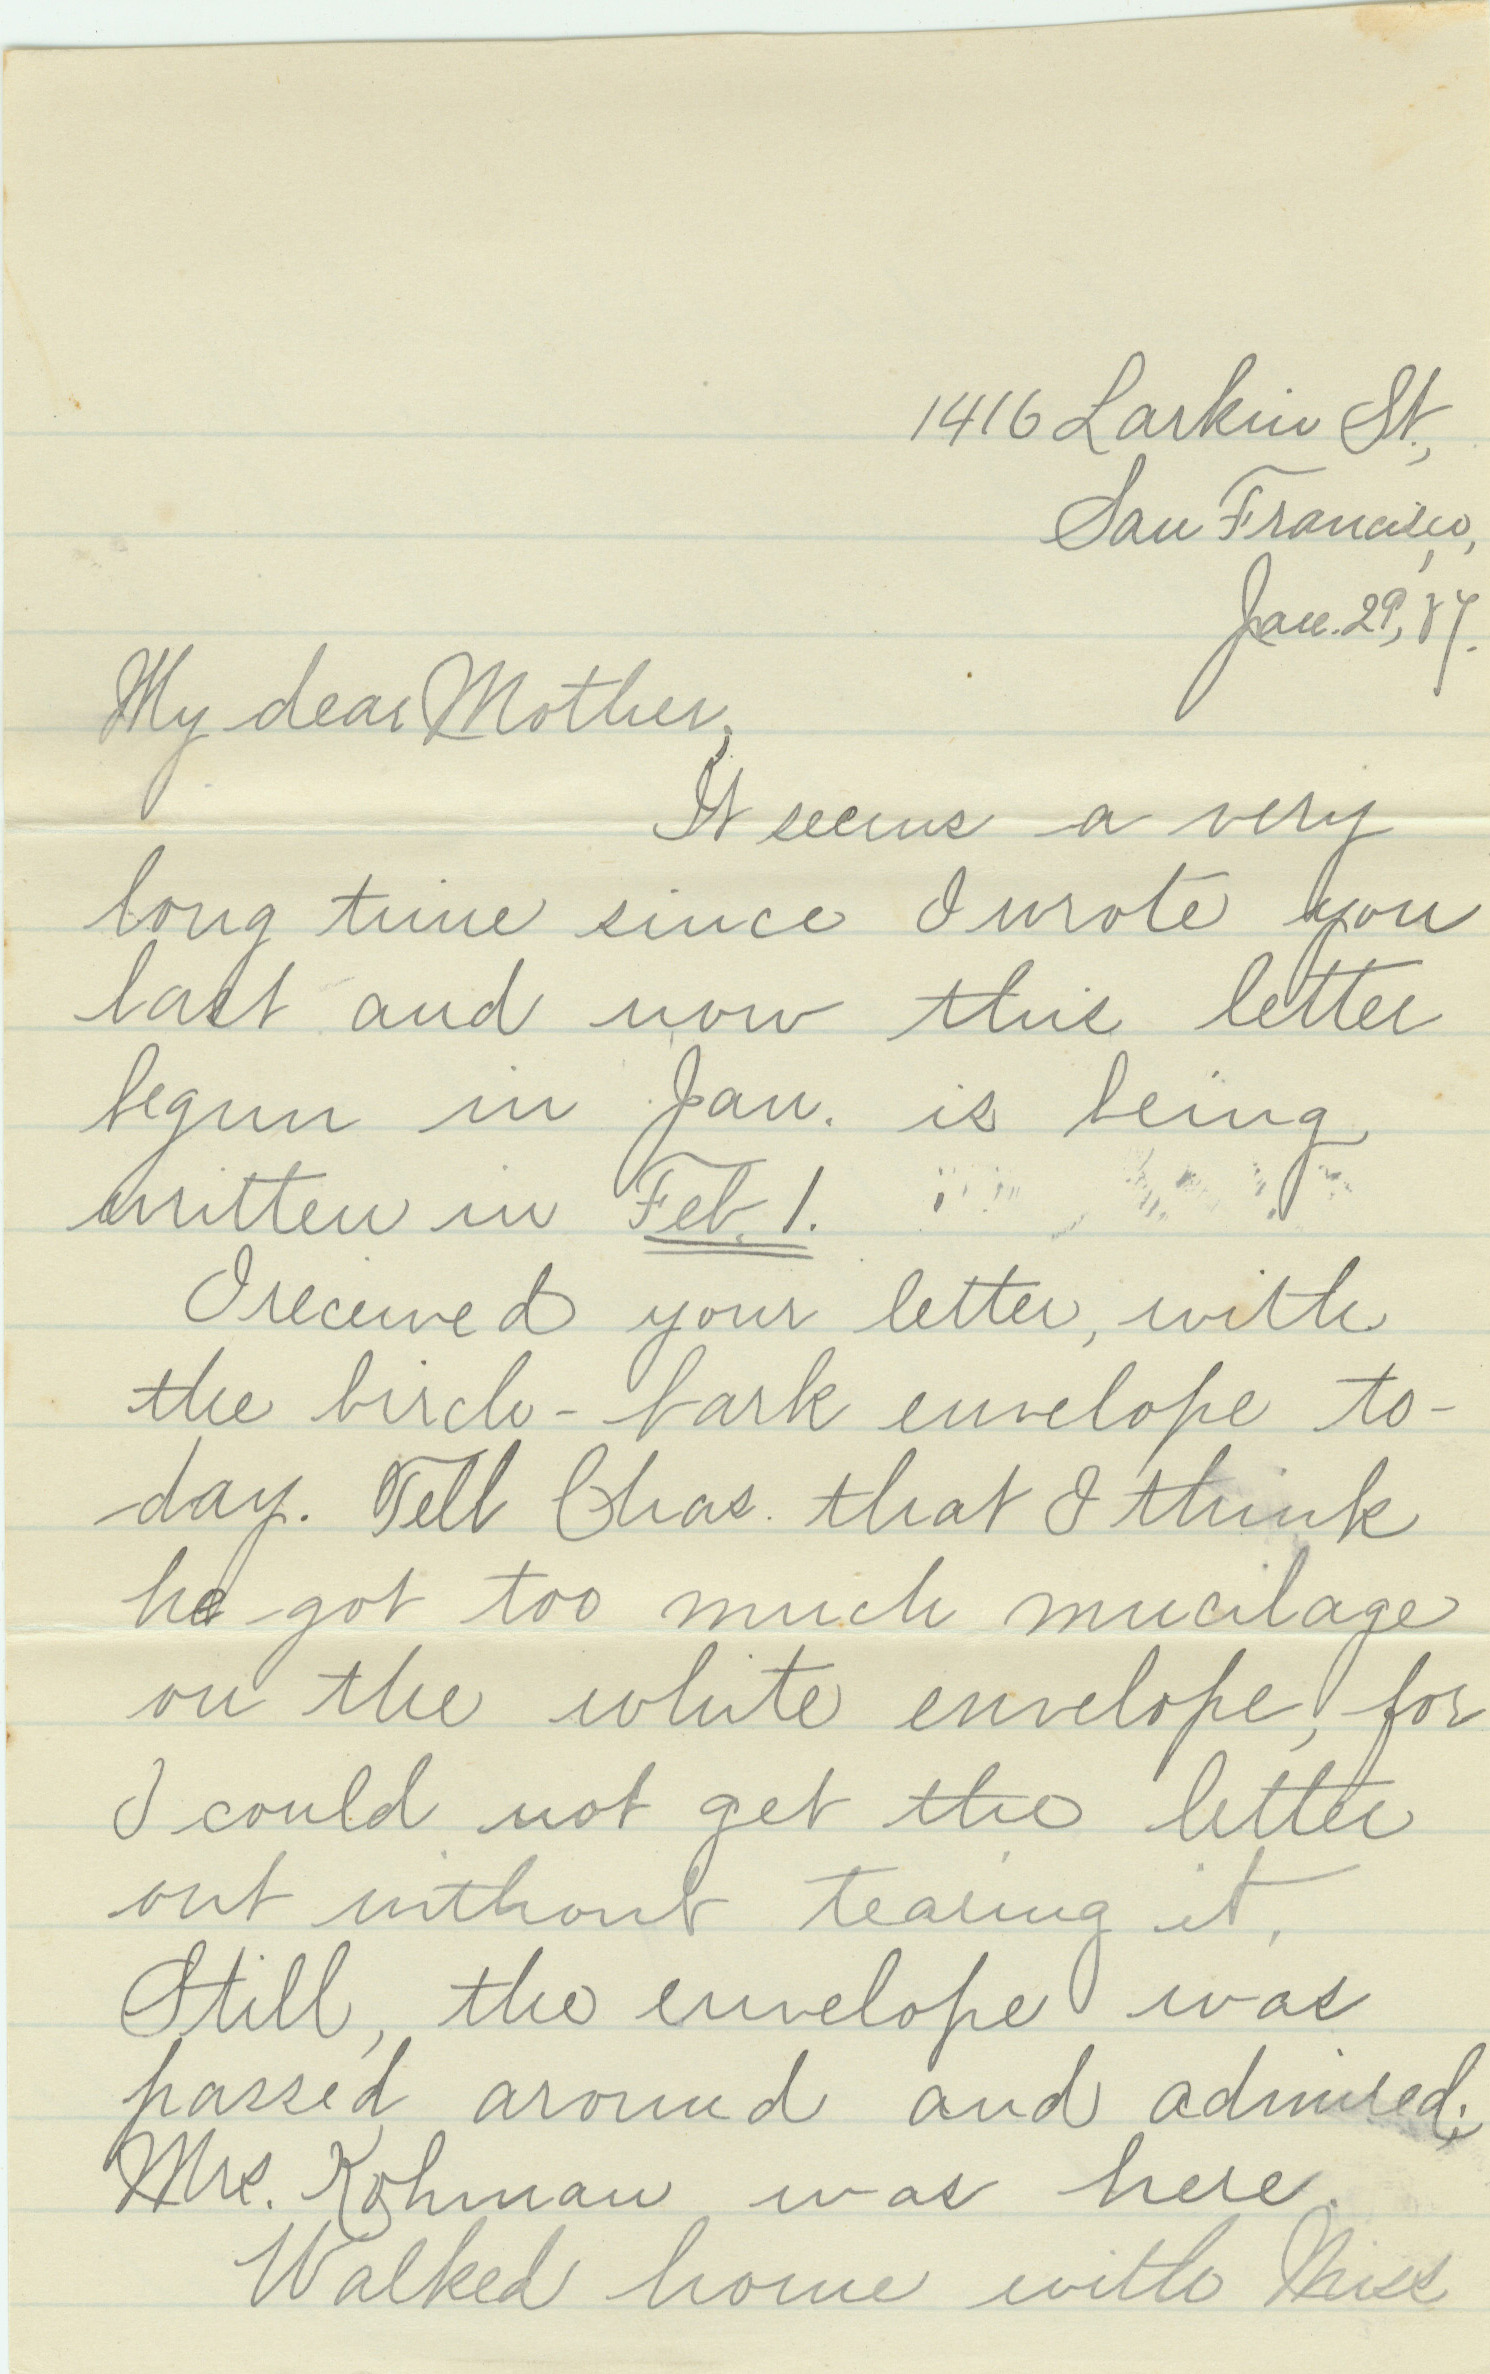 1416 Larkin St.,
San Francisco,
Jan. 29, 87.
My dear Mother,
It seems a very
long time since I wrote you
last and now this letter
begun in Jan. is being
written in Feb. 1.
I received your letter, with
the birch-bark envelope to-
day. Tell Chas. that I think
he got too much mucilage
on the white envelope, for
I could not get the letter
out without tearing it.
Still, the envelope was
passed around and admired;
Mrs. Kohman was here.
Walked home with Miss